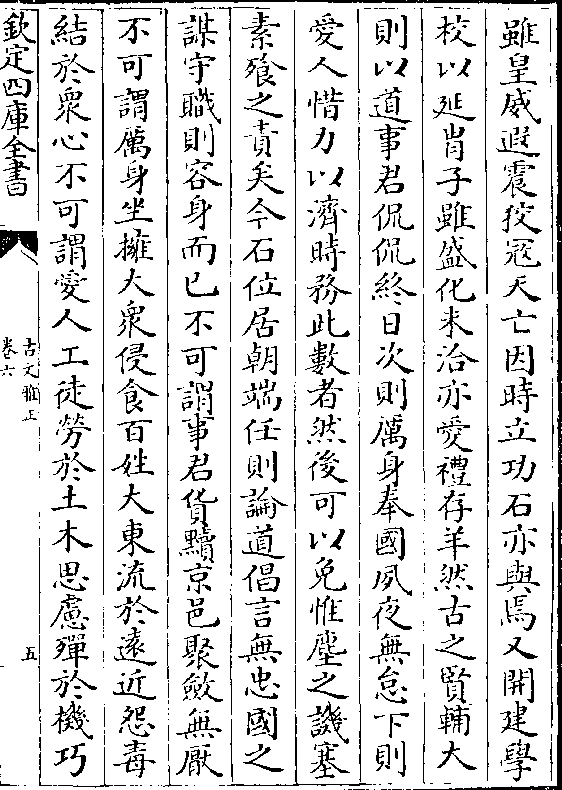 雖皇威遐震狡寇天亡因時立功石亦與焉又開建學
校以延胄子雖盛化未洽亦愛禮存羊然古之賢輔大
則以道事君侃侃終日次則厲身奉國夙夜無怠下則
愛人惜力以濟時務此數者然後可以免惟塵之譏塞
素飱之責矣今石位居朝端任則論道倡言無忠國之
謀守職則容身而已不可謂事君貨黷京邑聚斂無厭
不可謂厲身坐擁大衆侵食百姓大東流於遠近怨毒
結於衆心不可謂愛人工徒勞於土木思慮殫於機巧
欽定四庫全書
古文雅正
卷六
五